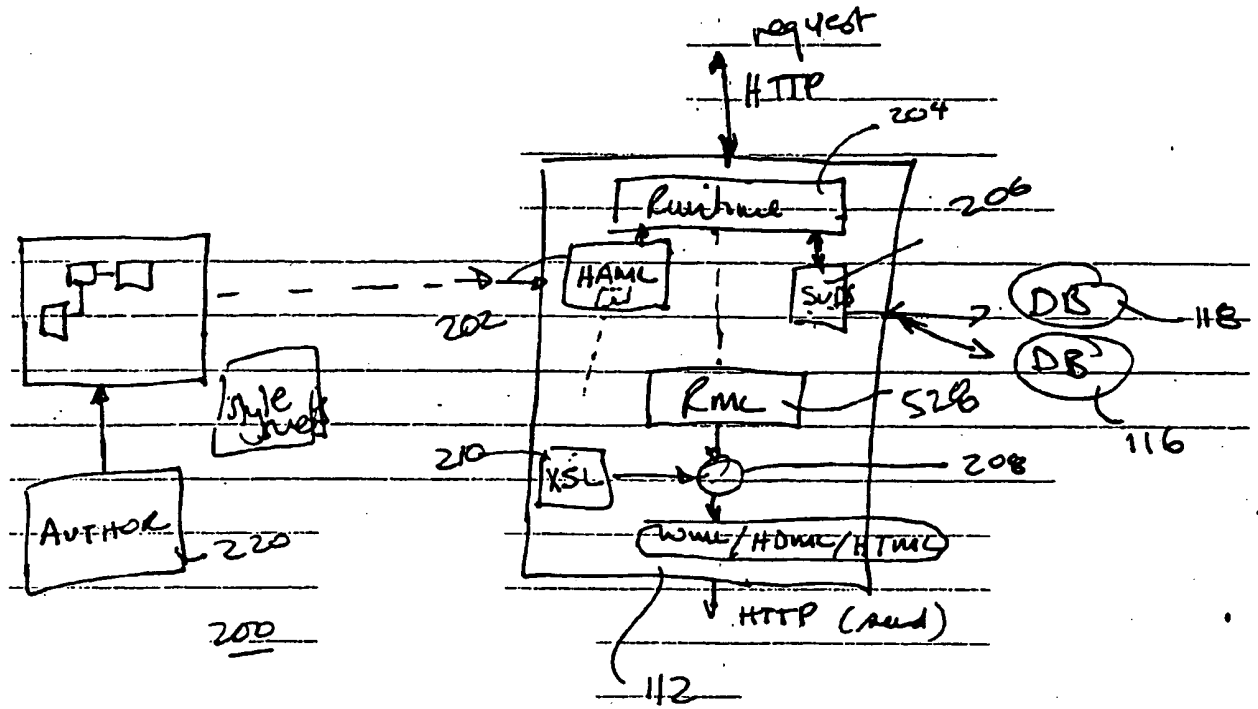 request
HTTP
204
Runtime
206
HAML
202
DB
118
DB
116
style
RML
528
210
XSL
208
AUTHOR
220
WML/HDML/HTML
200
HTTP (send)
112